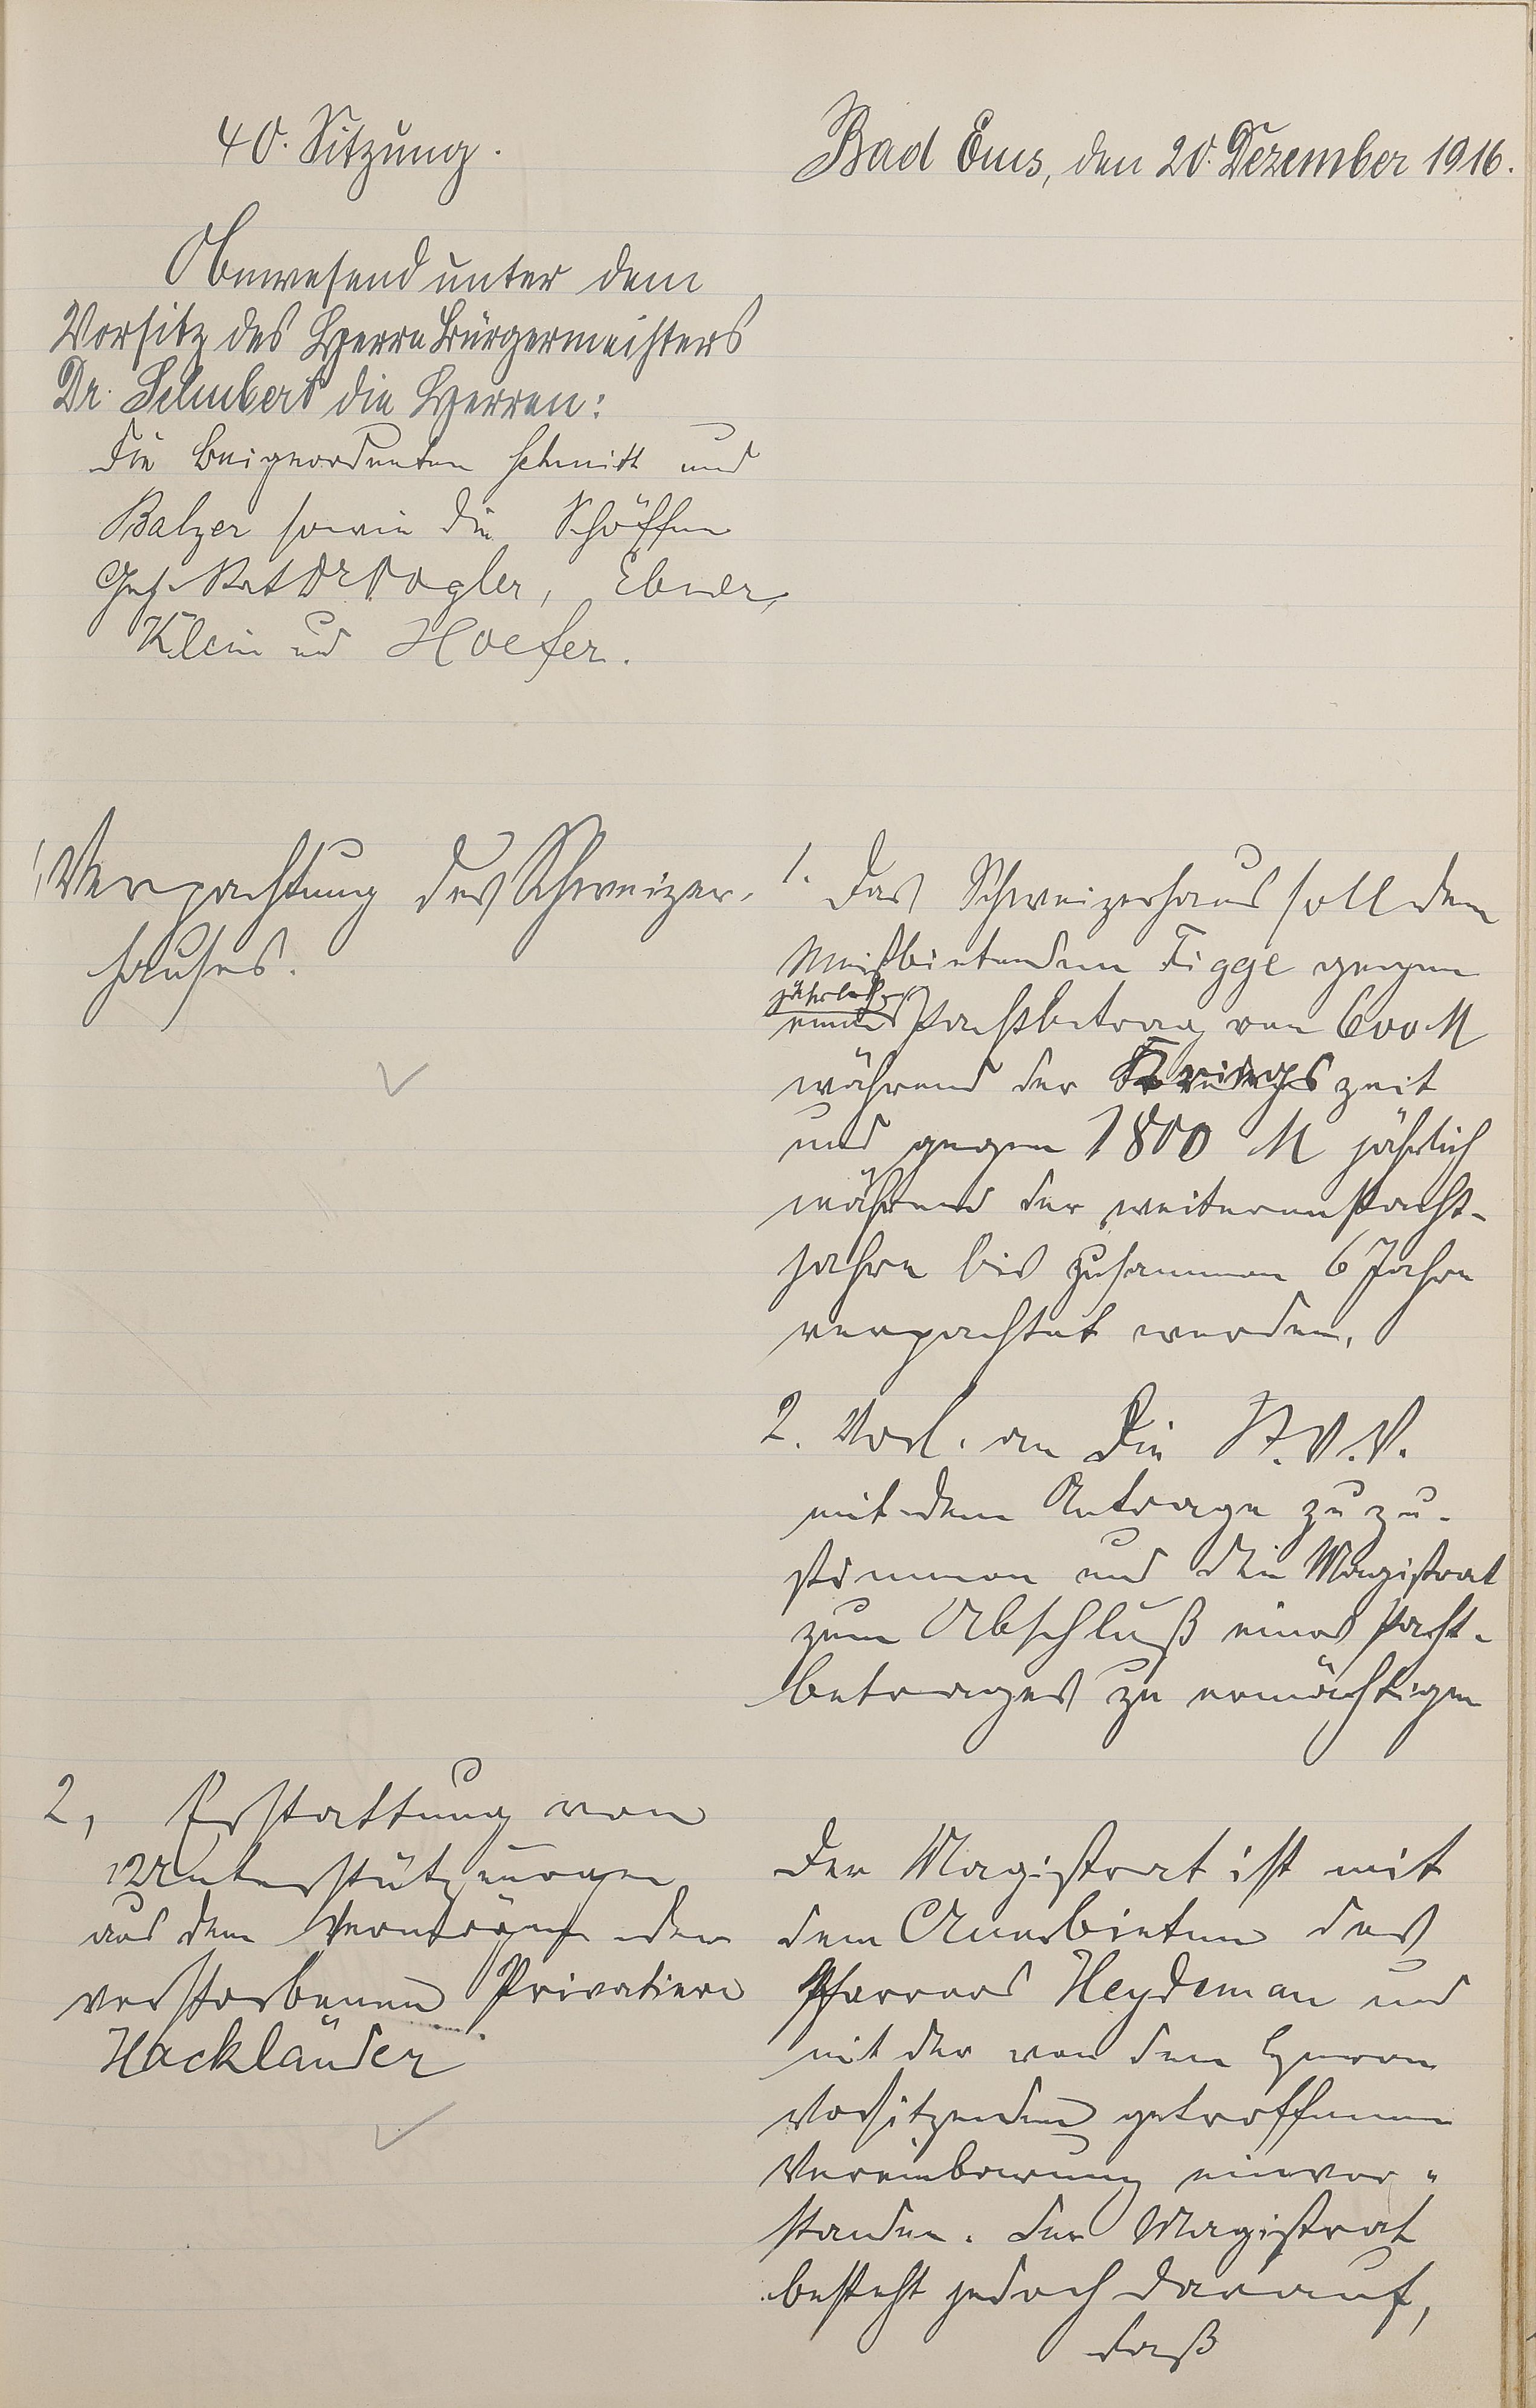 40. Sitzung.
Bad Ems, den 20. Dezember 1916.
Anwesend unter dem
Vorsitz des Herrn Bürgermeisters
Dr. Schubert die Herren:
die Beigeordneten Schmitt und
Balzer sowie die Schöffen
Geh. Rat Dr Vogler, Ebner,
Klein und Hoefer.
1, Verpachtung des Schweizer-
hauses.
1. Das Schweizerhaus soll dem
Meistbietenden Figge gegen
jährlich
einen Pachtbetrag von 600 M
während der Kriegszeit
und gegen 1800 M jährlich
während der weiteren Pacht-
jahre bis zusammen 6 Jahre
verpachtet werden.
2. Vorl. an die St.V.V.
mit dem Antrage zuzu-
stimmen und den Magistrat
zum Abschluß eines Pacht-
betrages zu ermächtigen
2, Erstattung von
Unterstützungen
aus dem Vermögen der
verstorbenen Privatiere
Hackländer
Der Magistrat ist mit
dem Anerbieten des
Pfarrers Heydeman und
mit der von dem Herrn
Vorsitzenden getroffenen
Vereinbarung einver-
standen. Der Magistrat
besteht jedoch darauf,
daß